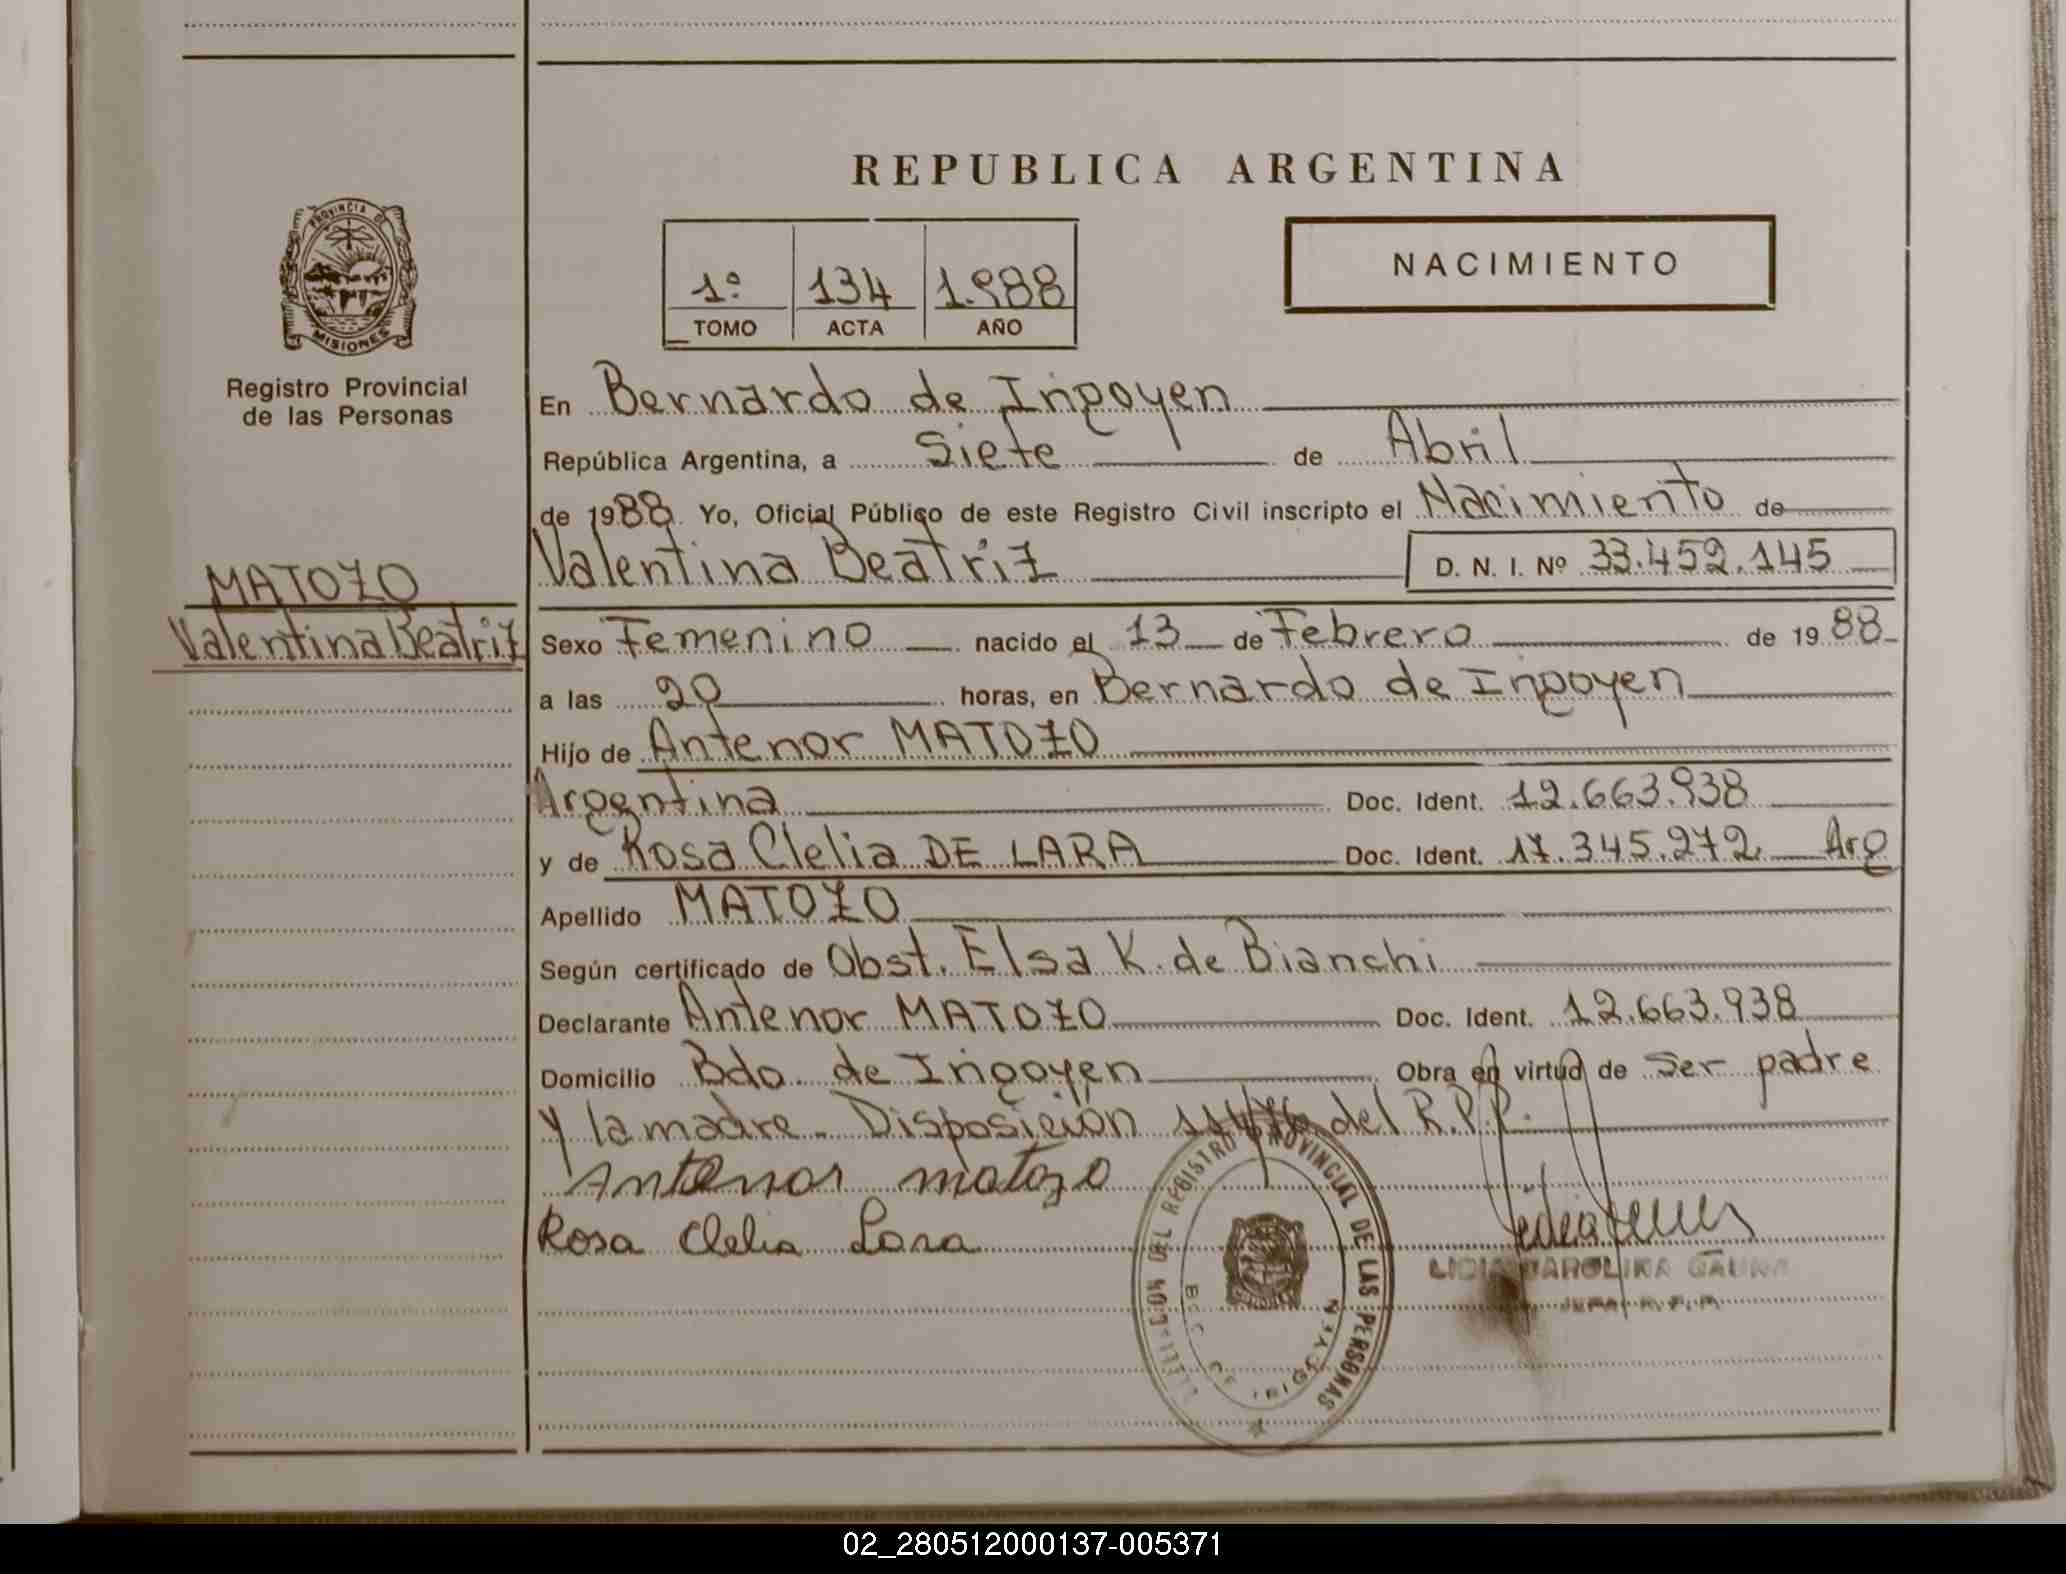 REPUBLICA ARGENTINA
PROVINCIA DE
MISIONES
Registro Provincial
de las Personas
1º 134 1.988
TOMO ACTA AÑO
NACIMIENTO
En Bernardo de Irigoyen
República Argentina, a Siete de Abril
de 1988 Yo, Oficial Público de este Registro Civil inscripto el Nacimiento de
MATOZO
Valentina Beatriz
Valentina Beatriz D. N. I. Nº 33.452.145
Sexo Femenino nacido el 13 de Febrero de 1988
a las 20 horas, en Bernardo de Irigoyen
Hijo de Antenor MATOZO
Argentina Doc. Ident. 12.663.938
y de Rosa Clelia DE LARA Doc. Ident. 17.345.272 Arg
Apellido MATOZO
Según certificado de Obst. Elsa K. de Bianchi
Declarante Antenor MATOZO Doc. Ident. 12.663.938
Domicilio Bdo. de Irigoyen Obra en virtud de ser padre
y la madre. Disposición del R.P.P.
Antenor matozo
Rosa Clelia Lara
DEL REGISTRO PROVINCIAL DE LAS PERSONAS
BDO. DE IRIGOYEN
LIDIA CAROLINA GAUNA
JEFA R. P. P.
02_280512000137-005371